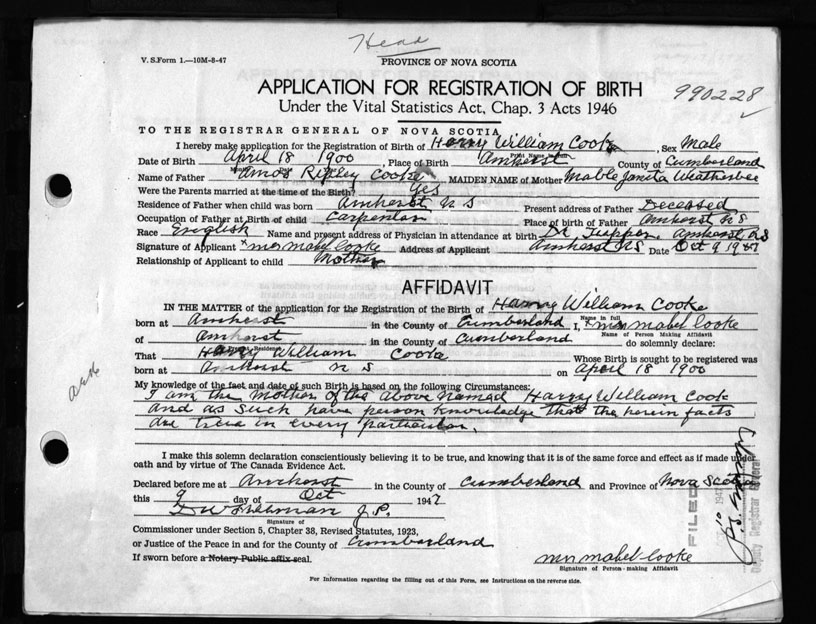 Head
V. S. Form 1.—10M-8-47
PROVINCE OF NOVA SCOTIA
APPLICATION FOR REGISTRATION OF BIRTH
990228
Under the Vital Statistics Act, Chap. 3 Acts 1946
TO THE REGISTRAR GENERAL OF NOVA SCOTIA
I hereby make application for the Registration of Birth of Harry William Cooke, Sex Male
Print Name in full
Date of Birth April 18 1900, Place of Birth Amherst County of Cumberland
Name of Father Amos Ripley Cooke MAIDEN NAME of Mother Mable Janita Weatherbee
Were the Parents married at the time of the Birth? Yes
Residence of Father when child was born Amherst N S Present address of Father Deceased
Occupation of Father at Birth of child Carpenter Place of birth of Father Amherst N S
Race English Name and present address of Physician in attendance at birth Dr Tupper. Amherst, N S
Signature of Applicant x mrs mabel cooke Address of Applicant Amherst N S Date Oct 9 1947
Relationship of Applicant to child Mother
AFFIDAVIT
IN THE MATTER of the application for the Registration of Birth of Harry William Cooke
Name in full
born at Amherst in the County of Cumberland I, x mrs mabel cooke
Name of Person Making Affidavit
of Amherst in the County of Cumberland do solemnly declare:
That Harry William Cooke Whose Birth is sought to be registered was
born at Amherst N S on April 18 1900
ask
My knowledge of the fact and date of such Birth is based on the following Circumstances:
I am the Mother of the above Named Harry William Cook
and as such have person knowledge that the herein facts
are true in every particular.
I make this solemn declaration conscientiously believing it to be true, and knowing that it is of the same force and effect as if made under
oath and by virtue of The Canada Evidence Act.
Declared before me at Amherst in the County of Cumberland and Province of Nova Scotia
this 9 day of Oct 1947
J.P.
Signature of
Commissioner under Section 5, Chapter 38, Revised Statutes, 1923,
or Justice of the Peace in and for the County of Cumberland
If sworn before a Notary Public affix seal.
mrs mabel cooke
Signature of Person making Affidavit
FILED
1947
Deputy Registrar General
For Information regarding the filling out of this Form, see Instructions on the reverse side.